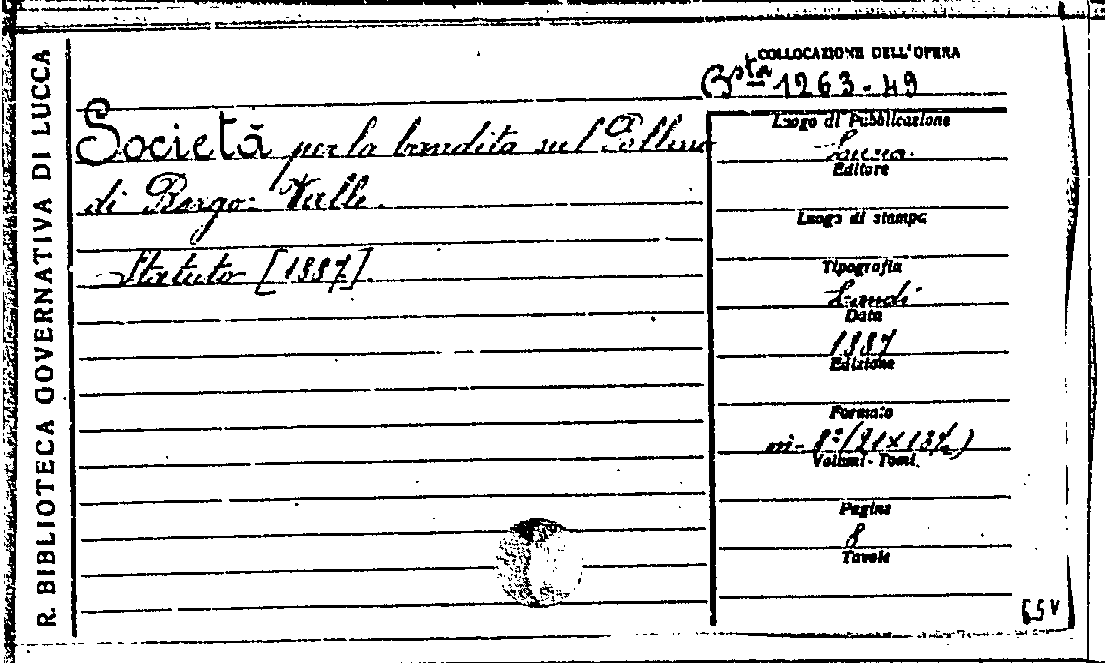 R. BIBLIOTECA GOVERNATIVA DI LUCCA
COLLOCAZIONE DELL'OPERA
Bsta 1263-49
Società per la bandita sul
di Borgo: Valle.
Statuto [1887].
Luogo di Pubblicazione
Lucca.
Editore
Luogo di stampa
Tipografia
Landi
Data
1887
Edizione
Formato
in-8º (21x13½)
Volumi - Tomi
Pagine
8
Tavole